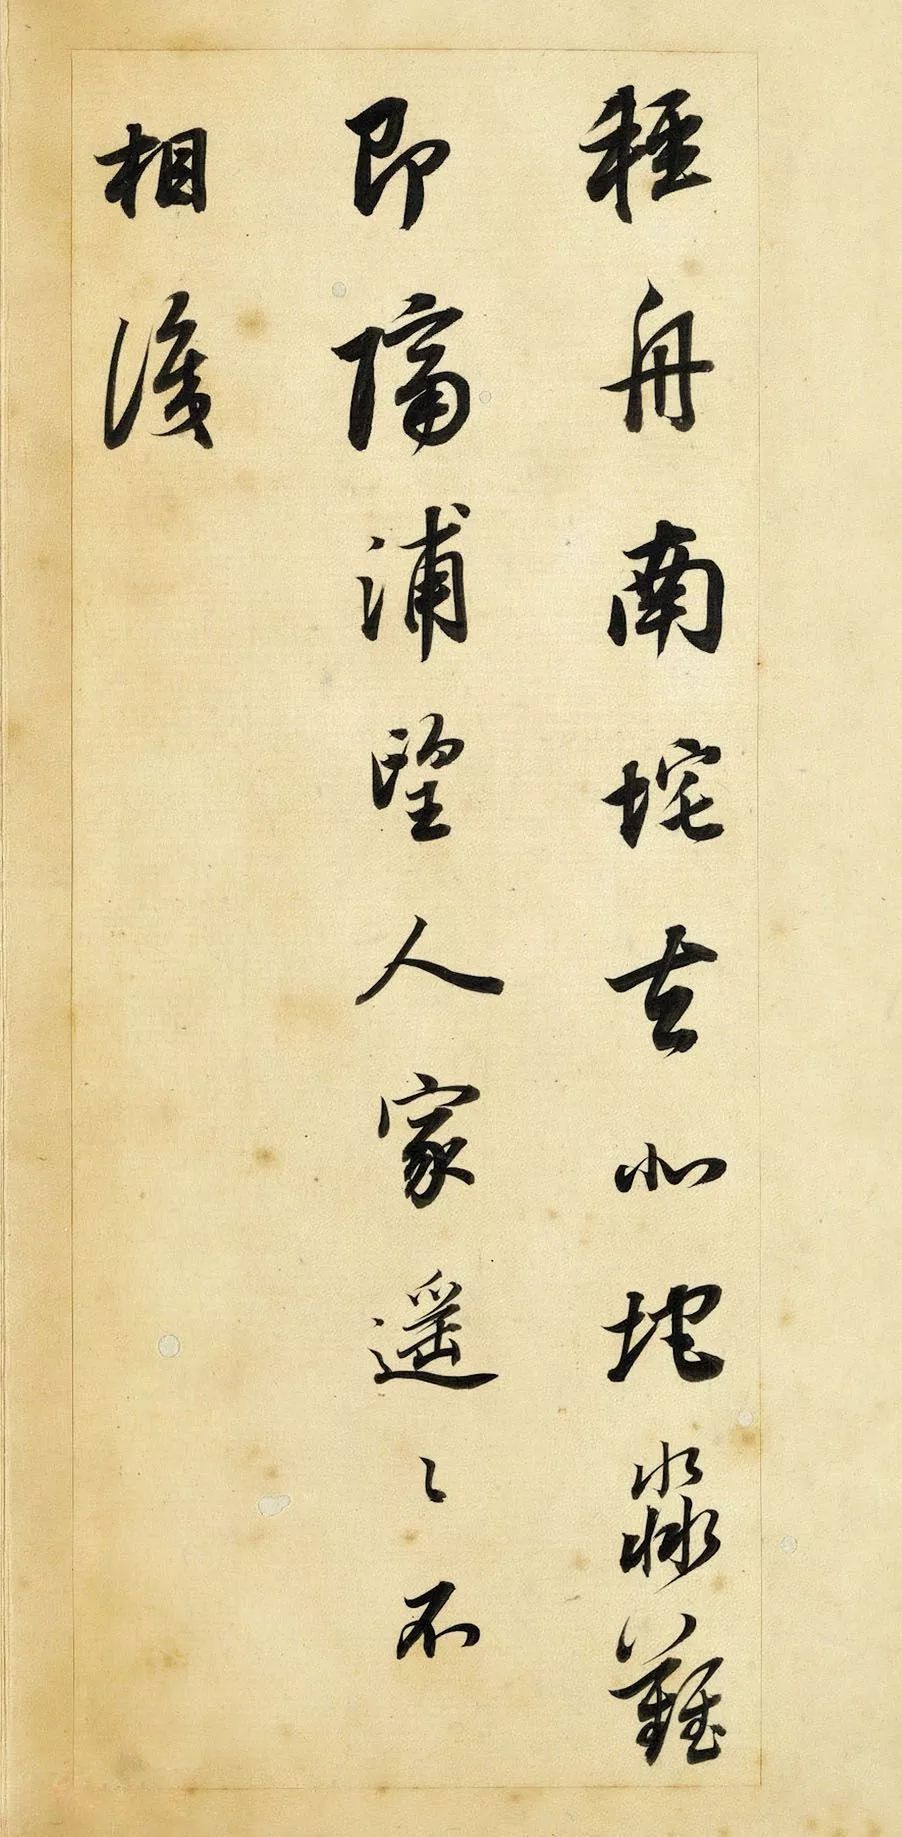 輕舟南垞去北垞淼難
即隔浦望人家遥〻不
相識